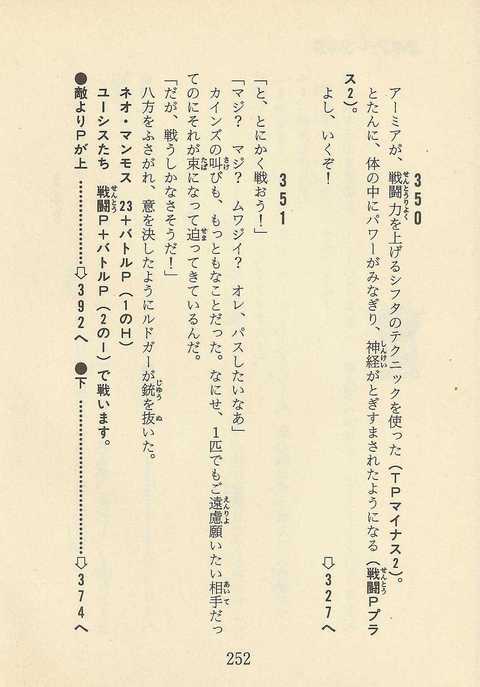 350
アーミアが、戦闘力を上げるシフタのテクニックを使った(TPマイナス2)。
とたんに、体の中にパワーがみなぎり、神経がとぎすまされたようになる(戦闘Pプラ
ス2)。
よし、いくぞ!
⇨327へ
351
「と、とにかく戦おう!」
「マジ? マジ? ムワジイ? オレ、パスしたいなあ」
カインズの叫びも、もっともなことだった。なにせ、1匹でもご遠慮願いたい相手だっ
てのにそれが束になって迫ってきているんだ。
「だが、戦うしかなさそうだ!」
八方をふさがれ、意を決したようにルドガーが銃を抜いた。
ネオ・マンモス 23+バトルP(1のH)
ユーシスたち 戦闘P+バトルP(2のI)で戦います。
●敵よりPが上……………⇨392へ ●下……………⇨374へ
252